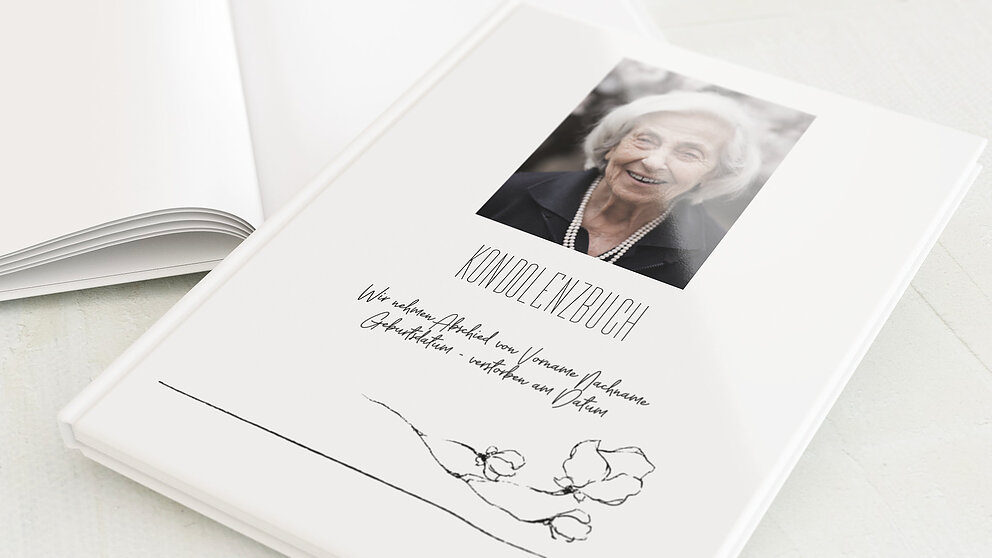 KONDOLENZBUCH
Wir nehmen Abschied von Vorname Nachname
Geburtsdatum - verstorben am Datum